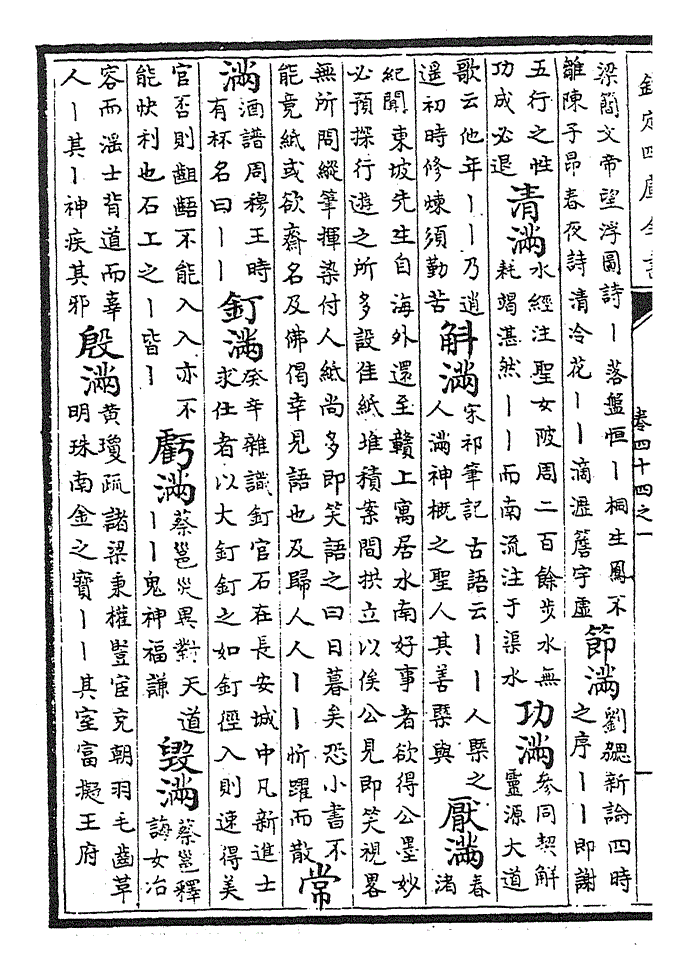 欽定四庫全書
卷四十四之一
梁簡文帝望浮圖詩丨落盤恒丨桐生鳳不
雛陳子昂春夜詩清冷花丨丨滴瀝簷宇虛
節滿
劉勰新論四時
之序丨丨即謝
五行之性
功成必退
清滿
水經注聖女陂周二百餘步水無
耗竭湛然丨丨而南流注于渠水
功滿
參同契解
靈源大道
歌云他年丨丨乃逍
遥初時修煉須勤苦
斛滿
宋祁筆記古語云丨丨人槩之
人滿神概之聖人其善槩與
厭滿
春
渚
紀聞東坡先生自海外還至贛上寓居水南好事者欲得公墨妙
必預探行遊之所多設佳紙堆積案間拱立以俟公見即笑視畧
無所問縱筆揮染付人紙尚多即笑語之曰日暮矣恐小書不
能竟紙或欲齋名及佛偈幸見語也及歸人人丨丨忻躍而散
常
滿
酒譜周穆王時
有杯名曰丨丨
釘滿
癸辛雜識釘官石在長安城中凡新進士
求仕者以大釘釘之如釘徑入則速得美
官否則齟齬不能入入亦不
能快利也石工之丨皆丨
虧滿
蔡邕災異對天道
丨丨鬼神福謙
毀滿
蔡邕釋
誨女冶
容而滛士背道而辜
人丨其丨神疾其邪
殷滿
黃瓊疏諸梁秉權豎宦充朝羽毛齒革
明珠南金之寶丨丨其室富擬王府